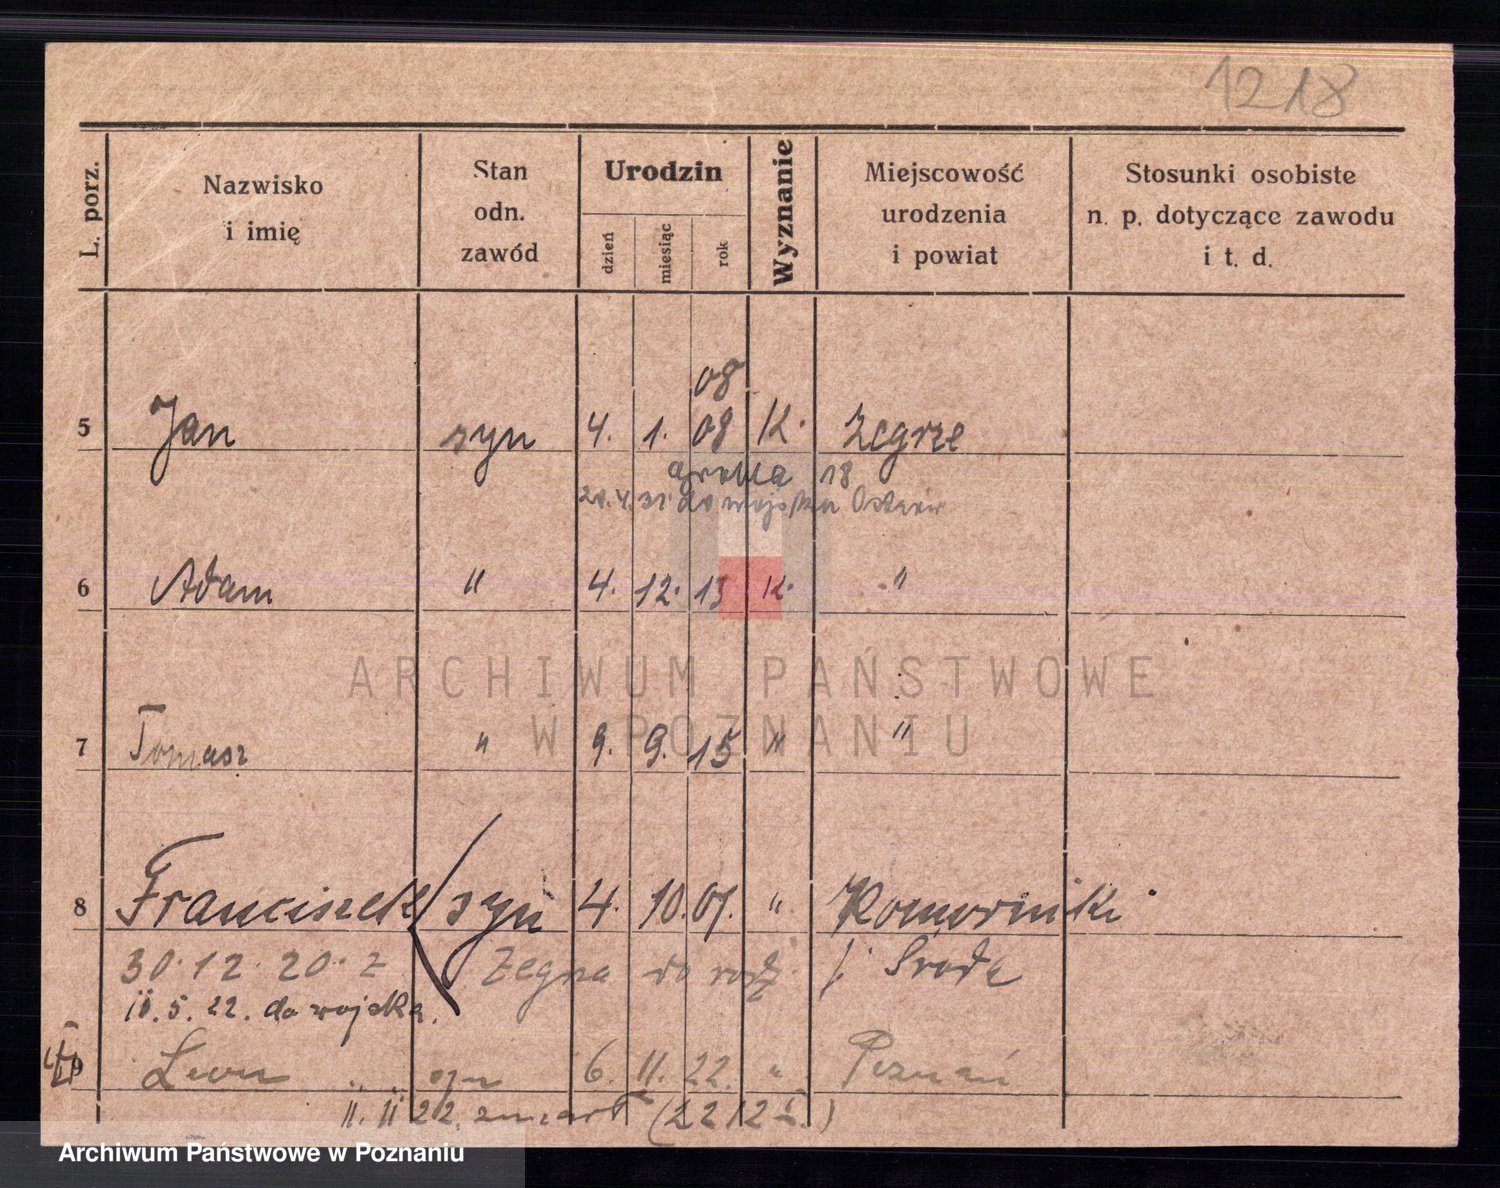 1218
L. porz. Nazwisko i imię Stan odn. zawód Urodzin dzień miesiąc rok Wyznanie Miejscowość urodzenia i powiat Stosunki osobiste n. p. dotyczące zawodu i t. d.
08
5 Jan syn 4. 1. 08 K. Zegrze
18
do wojska
6 Adam " 4. 12. 13 K. "
ARCHIWUM PAŃSTWOWE
W POZNANIU
7 Tomasz " 9. 9. 15 " "
8 Franciszek syn 4. 10. 01. "
30.12.20. z do rodz. Środa
5. 22. do wojska.
9 Leon syn 6. 11. 22. " Poznań
11. 11 22. zmarł
Archiwum Państwowe w Poznaniu